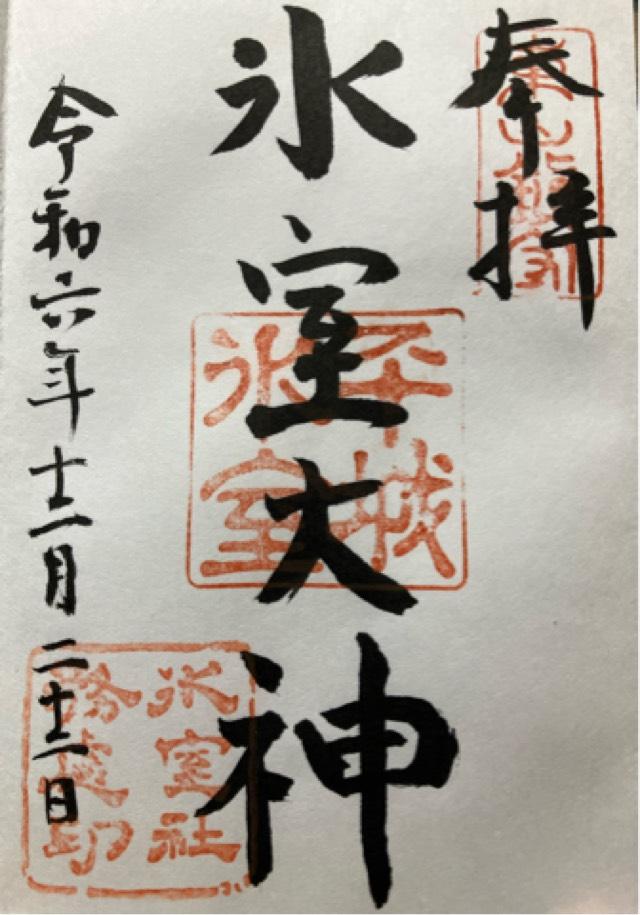 奉拝
氷室大神
平城
氷室
令和六年十一月二十一日
氷室社
務定印